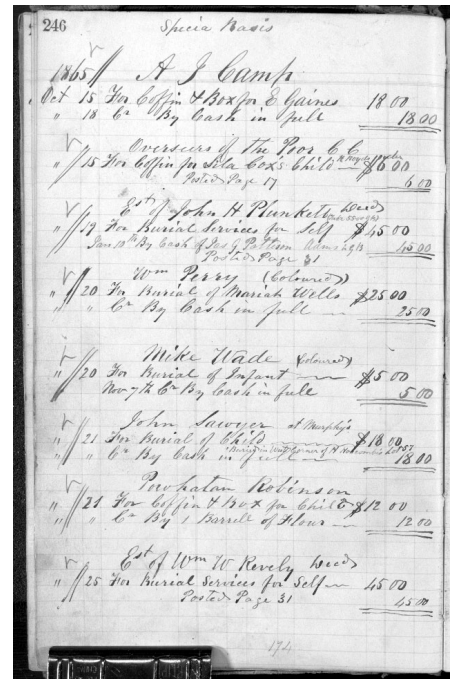 246 Specia Basis
1865 // A J Camp
Oct 15 For Coffin & Box for E Gaines 18 00
" 18 Cr By Cash in full 18 00
Overseers of the Poor C C
" // 15 For Coffin for Sila Cox's Child $6 00
Posted Page 17 6 00
Est of John H Plunkett Decd
" // 19 For Burial Services for Self $45 00
Jan 10th By Cash of Jas G Patteson Adms 45 00
Posted Page 31
Wm Perry (Coloured)
" // 20 For Burial of Mariah Wells $25 00
" Cr By Cash in full 25 00
Mike Wade (Coloured)
" // 20 For Burial of Infant $5 00
Nov 7th Cr By Cash in full 5 00
John Sawyer at Murphy's
" // 21 For Burial of Child $18 00
" " Cr By Cash in full 18 00
Powhatan Robinson
" // 21 For Coffin & Box for Child $12 00
" " Cr By 1 Barrel of Flour 12 00
Est of Wm W Revely Decd
" // 25 For Burial Services for Self 45 00
Posted Page 31 45 00
174